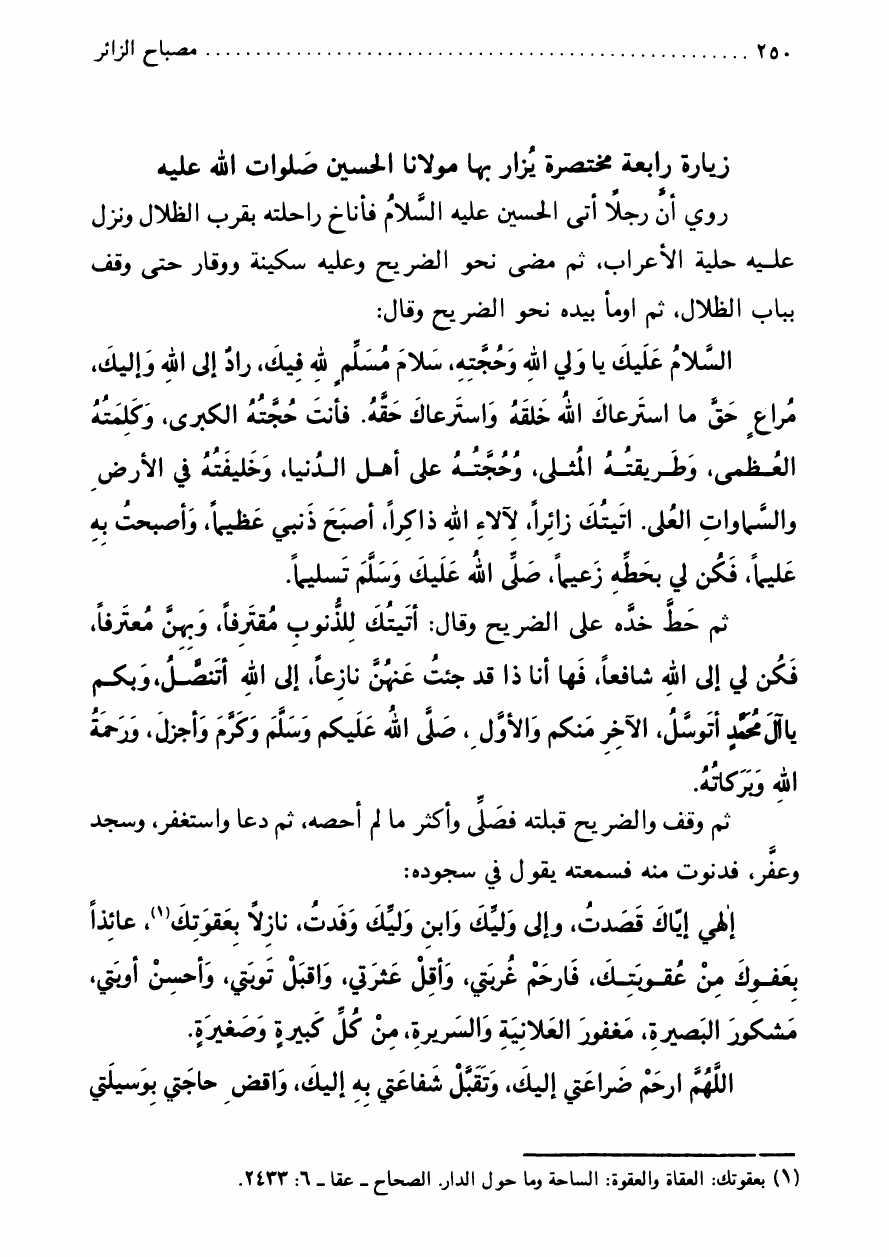 ٢٥٠ ........................................................ مصباح الزائر
زيارة رابعة مختصرة يُزار بها مولانا الحسين صَلوات الله عليه
روي أنَّ رجلاً أتى الحسين عليه السَّلامُ فأناخ راحلته بقرب الظلال ونزل
عليه حلية الأعراب، ثم مضى نحو الضريح وعليه سكينة ووقار حتى وقف
بباب الظلال، ثم اومأ بيده نحو الضريح وقال:
السَّلامُ عَلَيكَ يا وَلي اللهِ وَحُجَّتِهِ، سَلامَ مُسَلِّمٍ للهِ فِيكَ، رادٌ إلى اللهِ وَإليكَ،
مُراعٍ حَقَّ ما استَرعاكَ اللهُ خَلقَهُ وَاستَرعاكَ حَقَّهُ. فأنتَ حُجَّتُهُ الكبرى، وَكَلِمَتُهُ
العُظمى، وَطَريقتُهُ المُثلى، وُحُجَّتُهُ على أهلِ الدُنيا، وَخَليفَتُهُ في الأرضِ
والسَّماواتِ العُلى. اتَيتُكَ زائِراً، لآلاءِ اللهِ ذاكِراً، أصبَحَ ذَنبي عَظيماً، وَأصبحتُ بِهِ
عَليماً، فَكُن لي بِحَطِّهِ زَعيماً، صَلَّى اللهُ عَلَيكَ وَسَلَّمَ تَسليماً.
ثم حَطَّ خدَّه على الضريح وقال: أتَيتُكَ لِلذُّنوبِ مُقتَرِفاً، وَبِهِنَّ مُعتَرِفاً،
فَكُن لي إلى اللهِ شافعاً، فَها أنا ذا قد جئتُ عَنهُنَّ نازِعاً، إلى اللهِ أتَنصَّلُ، وَبِكم
ياآلَ مُحَمَّدٍ أتَوسَّلُ، الآخِرِ مِنكم وَالأوَّلِ، صَلَّى اللهُ عَلَيكم وَسَلَّمَ وَكَرَّمَ وَأجزلَ، وَرَحمَةُ
اللهِ وَبَرَكاتُهُ.
ثم وقف والضريح قبلته فصَلَّى وأكثر ما لم أحصه، ثم دعا واستغفر، وسجد
وعفَّر، فدنوت منه فسمعته يقول في سجوده:
إلهي إيّاكَ قَصَدتُ، وإلى وَليِّكَ وَابنِ وَليِّكَ وَفَدتُ، نازِلاً بِعَقوَتِكَ(١)، عائِذاً
بِعَفوِكَ مِنْ عُقوبَتِكَ، فَارحَمْ غُربَتي، وَأقِلْ عَثرَتي، وَاقبَلْ تَوبَتي، وَأحسِنْ أوبَتي،
مَشكورَ البَصيرةِ، مَغفورَ العَلانِيَةِ وَالسَريرةِ، مِنْ كُلِّ كَبيرةٍ وَصَغيرَةٍ.
اللَّهُمَّ ارحَمْ ضَراعَتي إليكَ، وَتَقَبَّلْ شَفاعَتي بِهِ إليكَ، وَاقضِ حاجَتي بِوَسيلَتي
(١) بعقوتك: العقاة والعقوة: الساحة وما حول الدار. الصحاح ـ عقا ـ ٦: ٢٤٣٣.